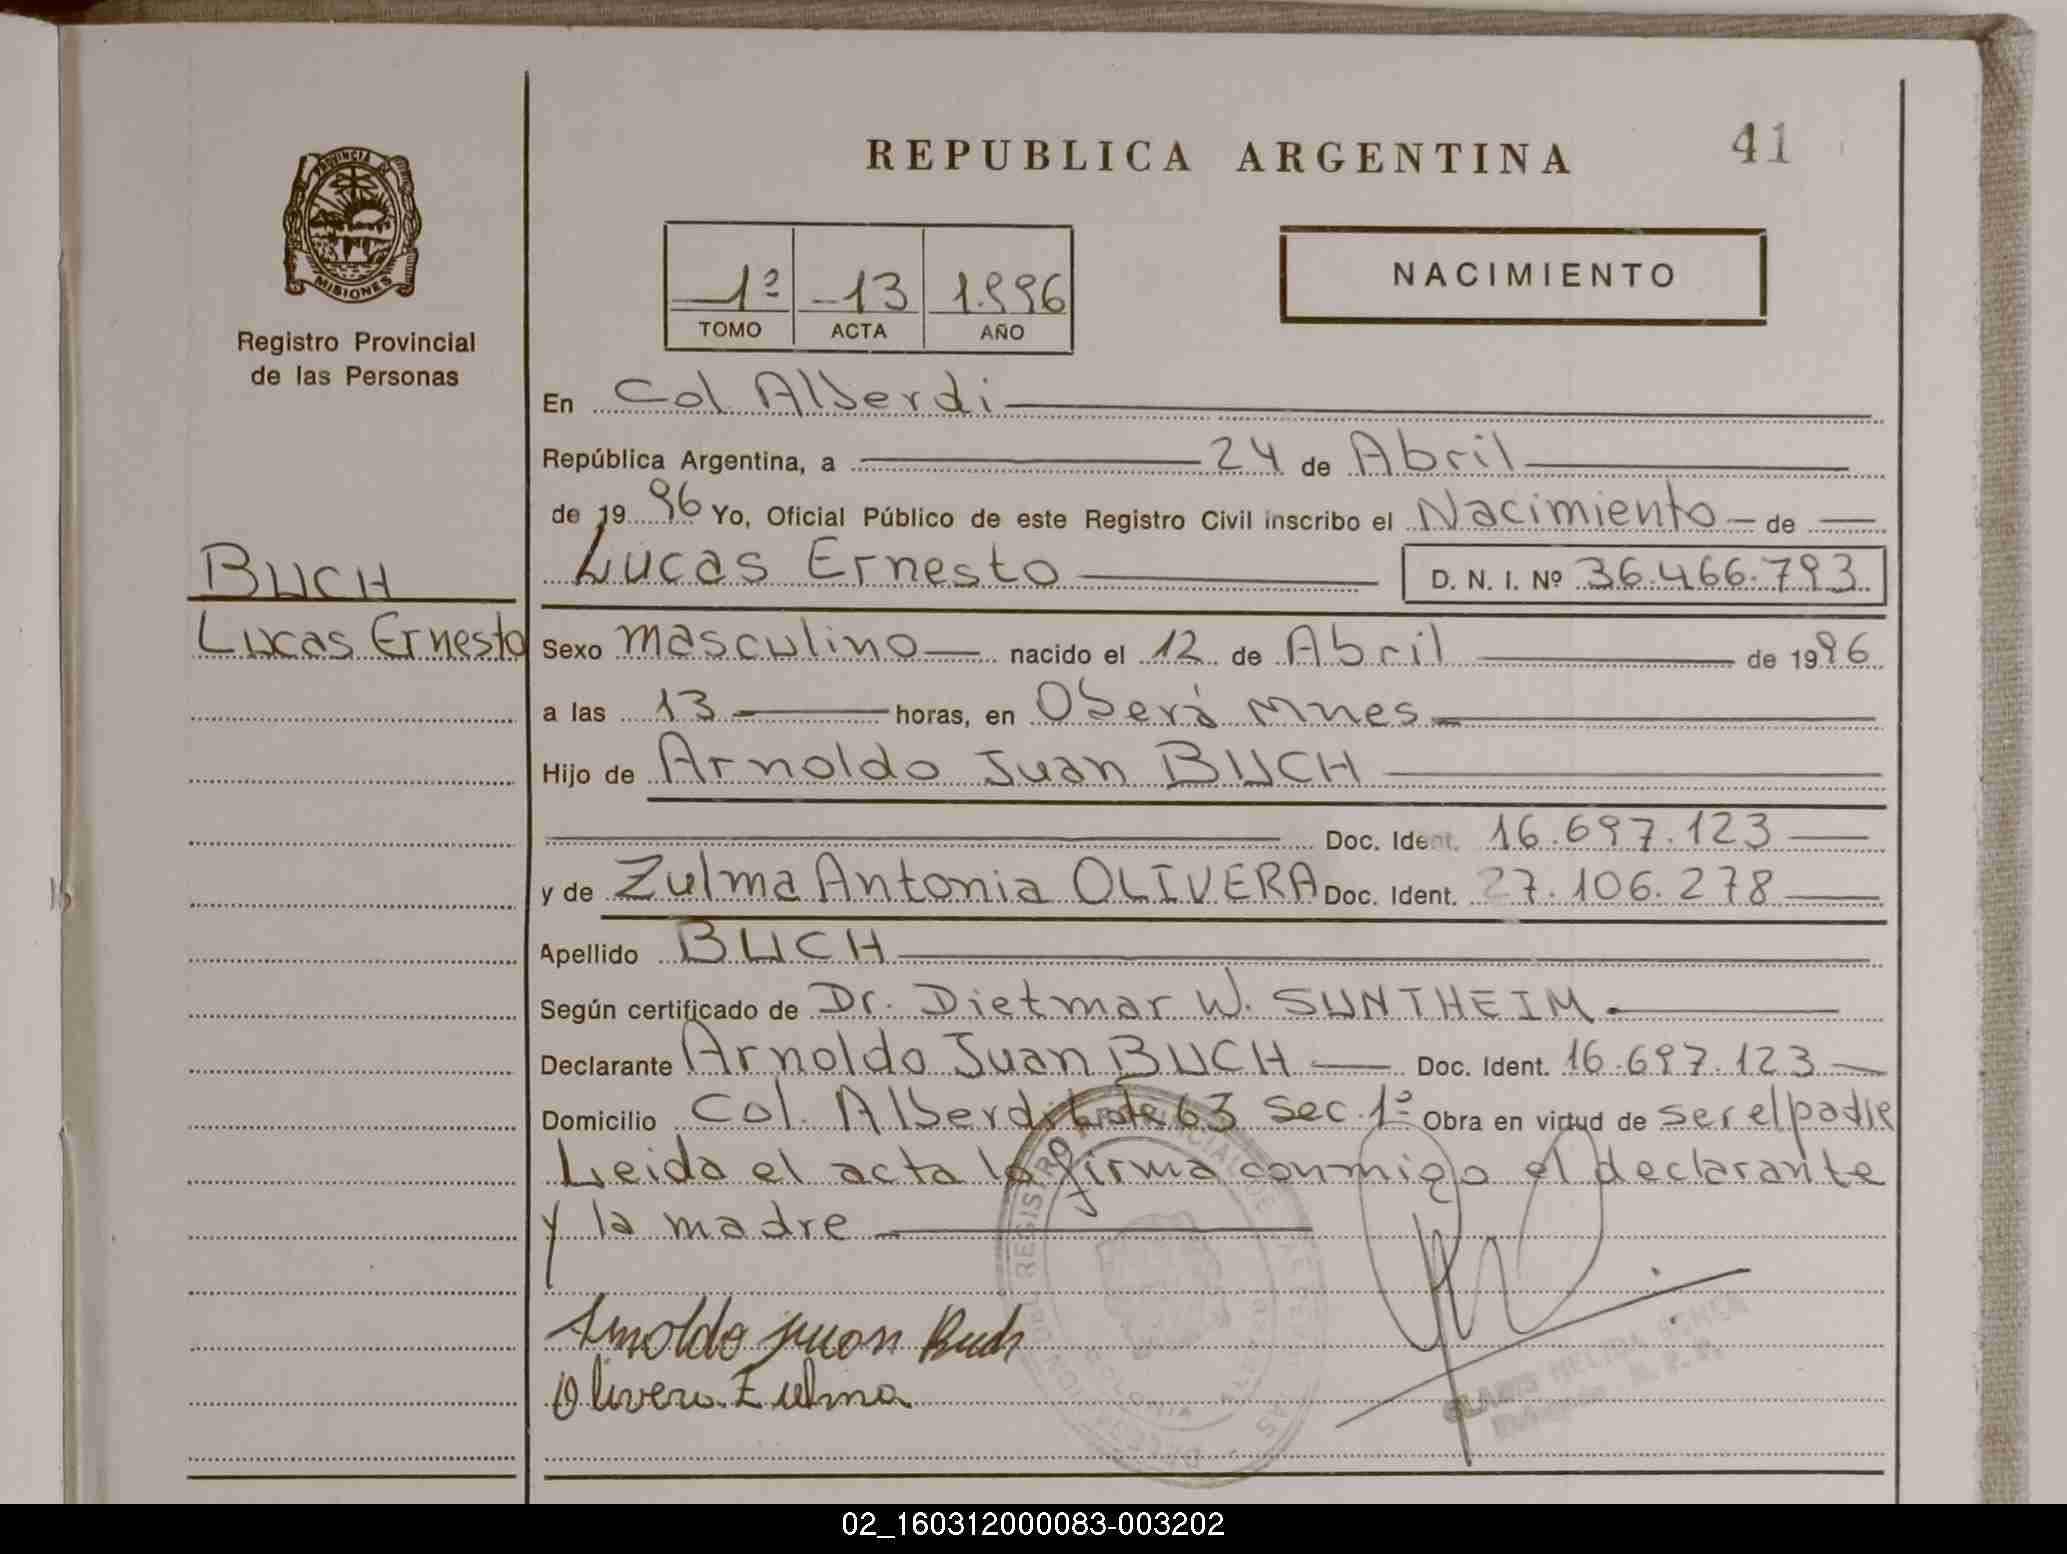 REPUBLICA ARGENTINA
41
PROVINCIA DE
MISIONES
Registro Provincial
de las Personas
1º -13 1.996
TOMO ACTA AÑO
NACIMIENTO
En Col Alberdi
República Argentina, a 24 de Abril
de 1996 Yo, Oficial Público de este Registro Civil inscribo el Nacimiento de
Lucas Ernesto D. N. I. Nº 36.466.793
BUCH
Lucas Ernesto
Sexo masculino nacido el 12 de Abril de 1996
a las 13 horas, en Oberá Mnes
Hijo de Arnoldo Juan BUCH
Doc. Ident. 16.697.123
y de Zulma Antonia OLIVERA Doc. Ident. 27.106.278
Apellido BUCH
Según certificado de Dr. Dietmar W. SUNTHEIM.
Declarante Arnoldo Juan BUCH Doc. Ident. 16.697.123
Domicilio Col. Alberdi 63 Sec. 1º Obra en virtud de ser el padre
Leida el acta la firma conmigo el declarante
y la madre
Arnoldo Juan Buch
Olivera Zulma
REGISTRO PROVINCIAL DE LAS
COLONIA ALBERDI
NELIDA
02_160312000083-003202